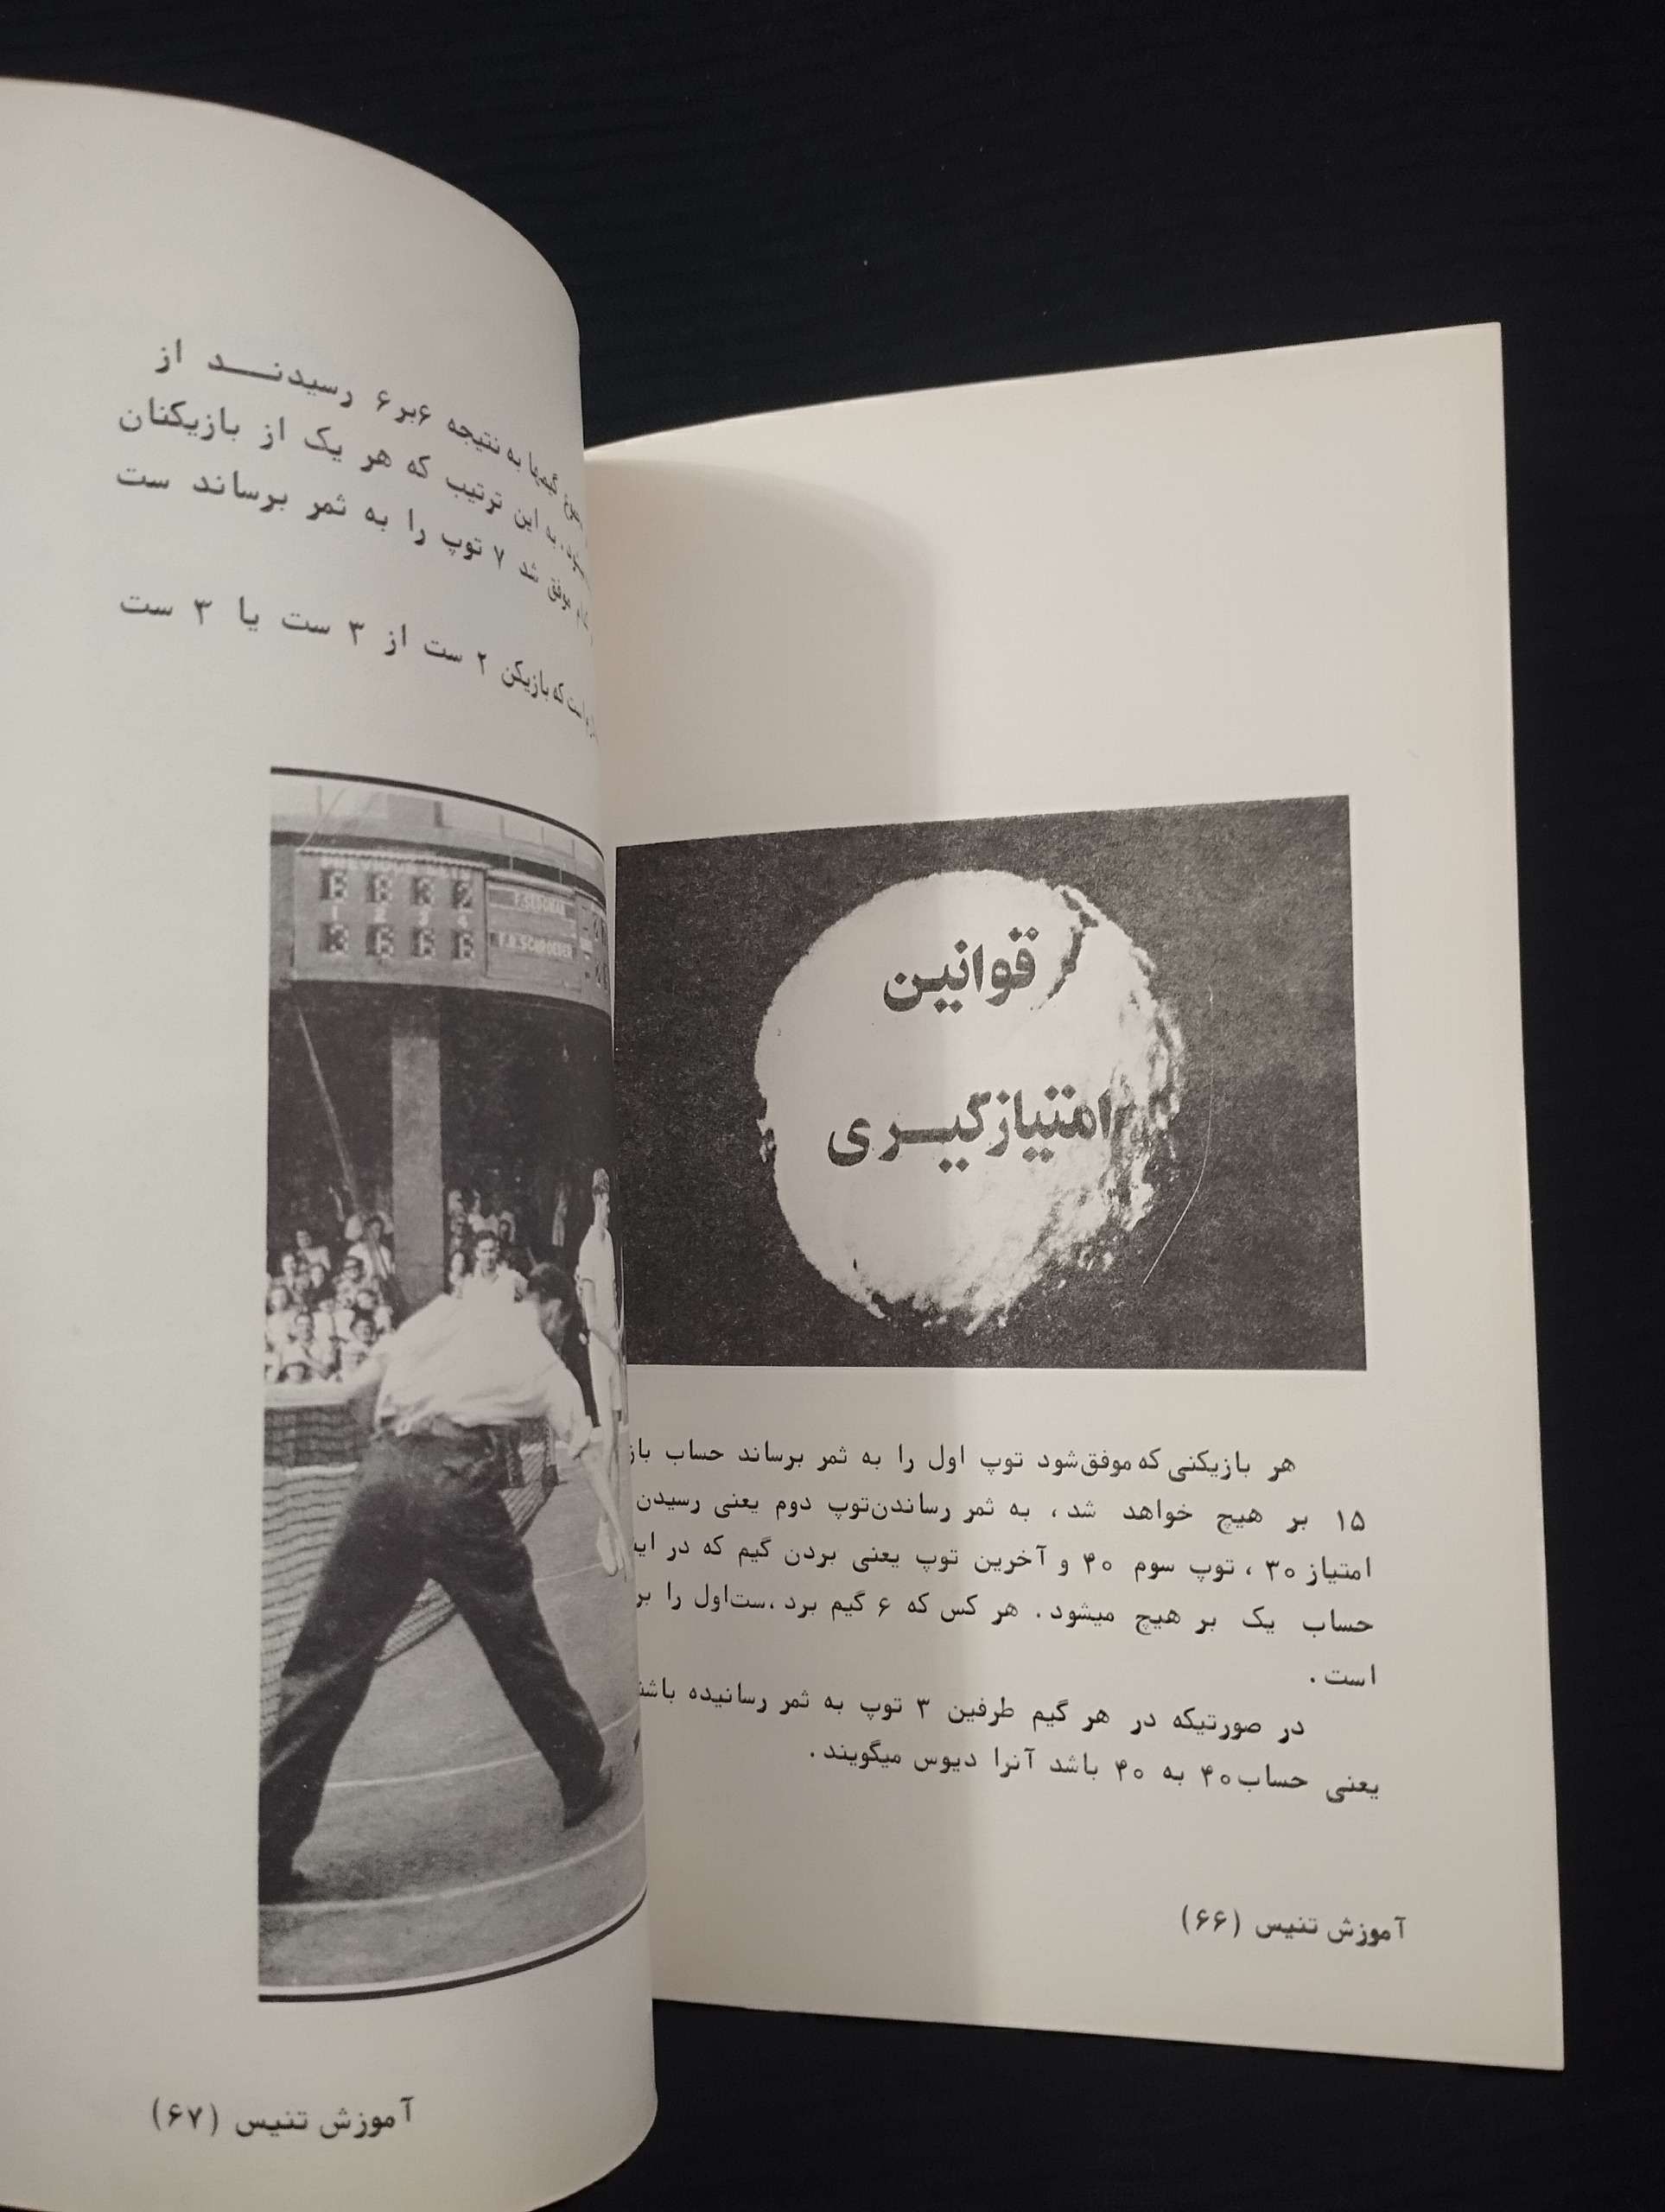 قوانین
امتیازگیری
هر بازیکنی که موفق‌شود توپ اول را به ثمر برساند حساب
۱۵ بر هیچ خواهد شد، به ثمر رساندن‌توپ دوم یعنی رسیدن
امتیاز ۳۰، توپ سوم ۴۰ و آخرین توپ یعنی بردن گیم که در
حساب یک بر هیچ میشود. هر کس که ۶ گیم برد،ست‌اول را
است.
در صورتیکه در هر گیم طرفین ۳ توپ به ثمر رسانیده
یعنی حساب۴۰ به ۴۰ باشد آنرا دیوس میگویند.
آموزش تنیس (۶۶)
گیمها به نتیجه ۶بر۶ رسیدنـــد از
به این ترتیب که هر یک از بازیکنان
موفق شد ۷ توپ را به ثمر برساند ست
است که بازیکن ۲ ست از ۳ ست یا ۳ ست
6 8 3 2
1 2 3 4
3 6 6 6
F.SEDGMAN
F.R.SCHROEDER
آموزش تنیس (۶۷)